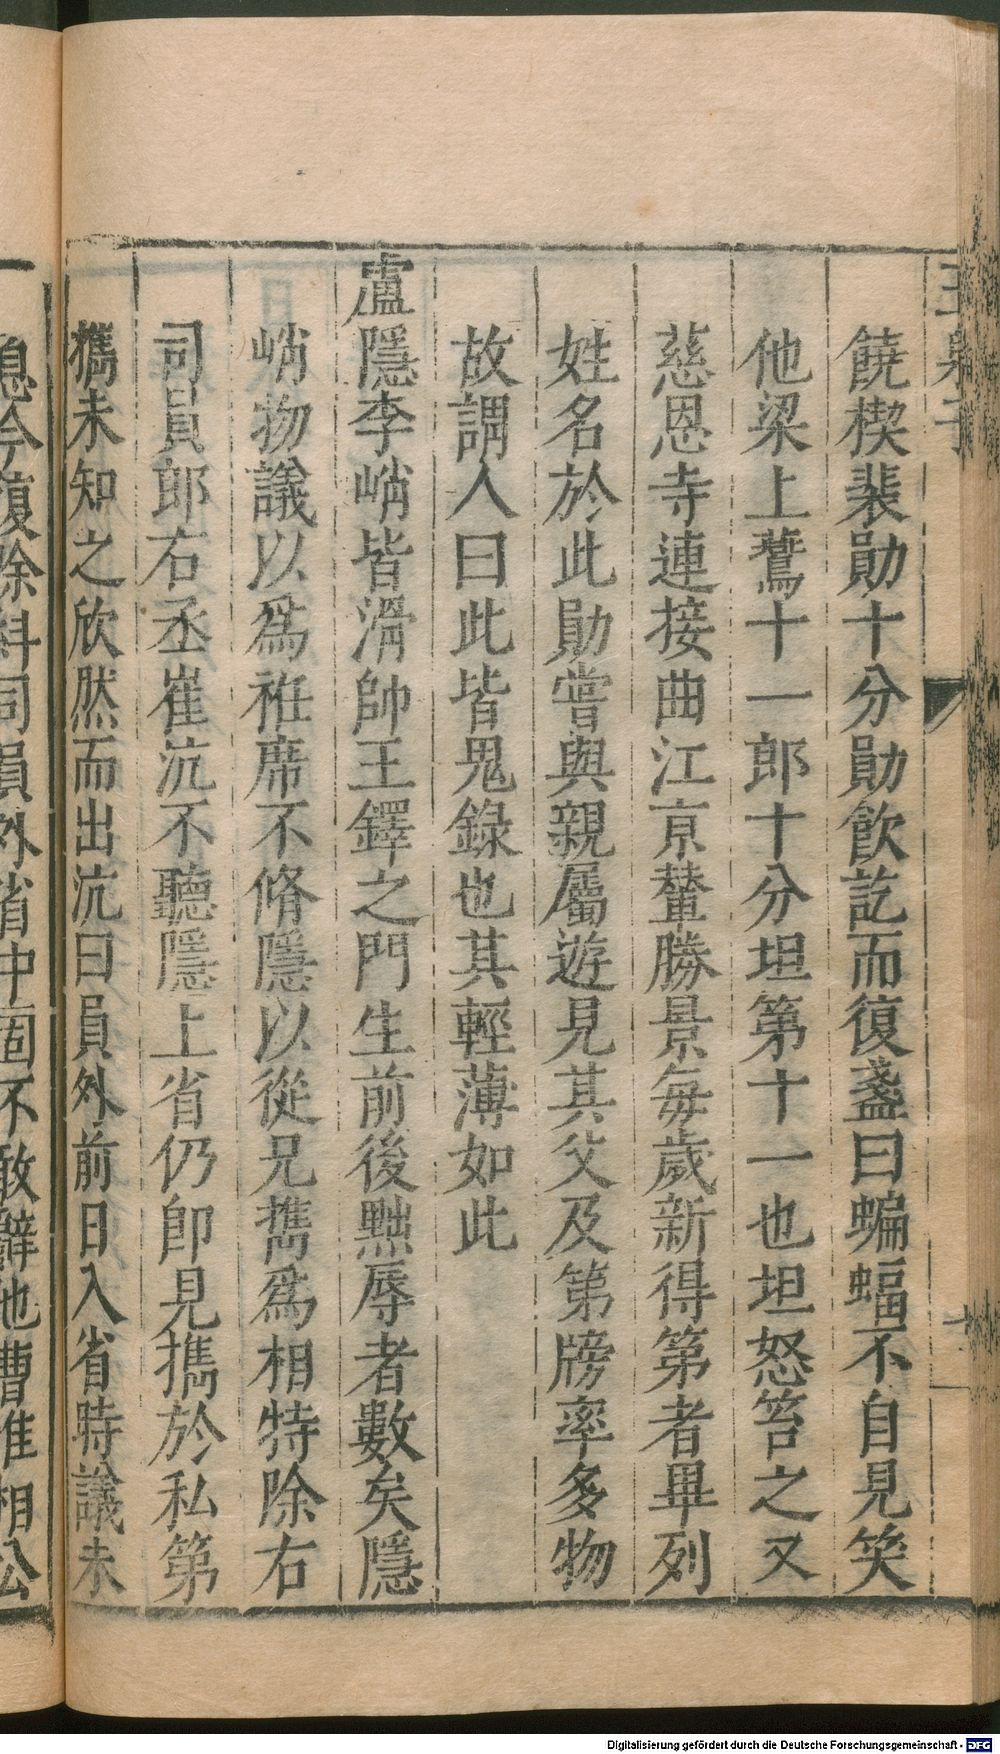 饒楔裴勛十分勛飲訖而復盞曰蝙蝠不自見笑
他梁上鷰十一郎十分坦第十一也坦怒笞之又
慈恩寺連接曲江京輦勝景每歲新得第者畢列
姓名於此勛嘗與親屬遊見其父及第牓率多物
故謂人曰此皆鬼錄也其輕薄如此
盧隱李峭皆滑帥王鐸之門生前後黜辱者數矣隱
峭物議以爲袵席不脩隱以從兄擕爲相特除右
司員郎右丞崔沆不聽隱上省仍即見攜於私第
攜未知之欣然而出沆曰員外前日入省時議未
息今復除糾司員外省中固不敢辭他曹惟相公
Digitalisierung gefördert durch die Deutsche Forschungsgemeinschaft - DFG